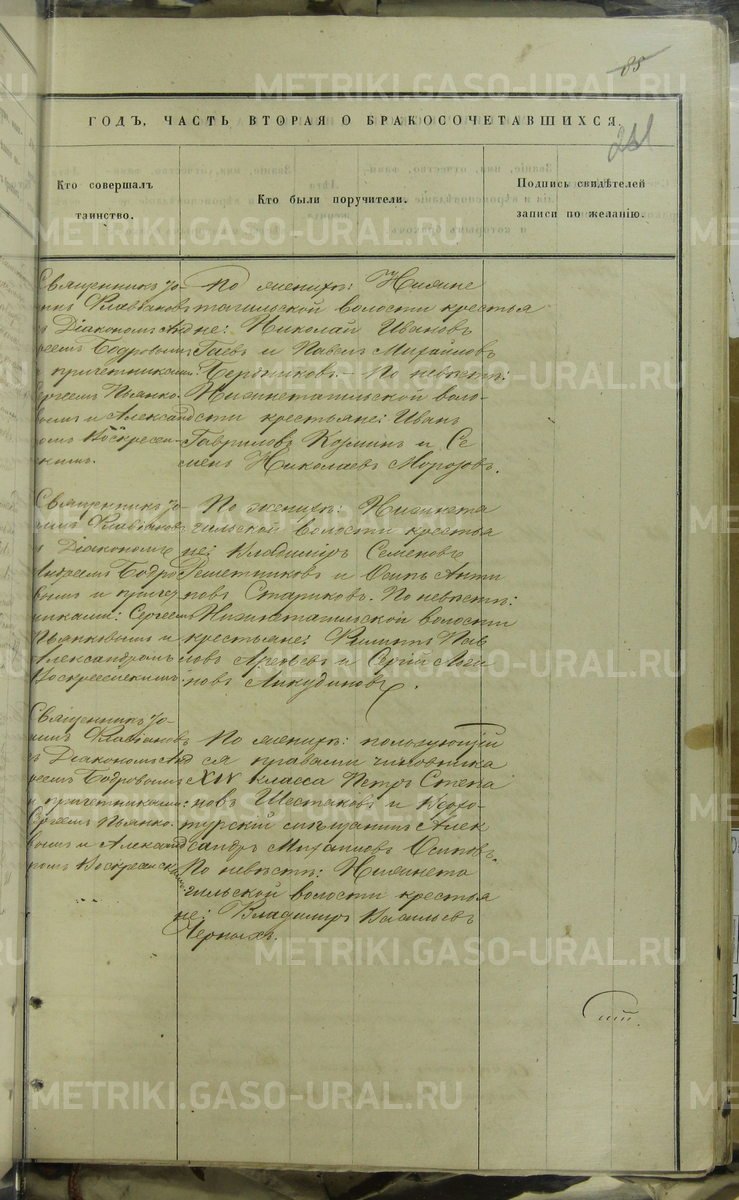 85
261
ГОДЪ, ЧАСТЬ ВТОРАЯ О БРАКОСОЧЕТАВШИХСЯ.
Кто совершалъ
таинство.
Кто были поручители.
Подпись свидѣтелей
записи по желанію.
Священникъ Іо-
аннъ Флавіановъ
съ Діакономъ Анд
реемъ Бодровымъ
и причетниками:
Сергеемъ Пьянко-
вымъ и Александ
ромъ Воскресен-
скимъ.
По женихѣ: Нижне
тагильской волости крестья
не: Николай Ивановъ
Гаевъ и Павелъ Михайловъ
Бердниковъ. По невѣстѣ:
Нижнетагильской воло-
сти крестьяне: Иванъ
Гавриловъ Козминъ и Се
менъ Николаевъ Морозовъ.
Священникъ Іо-
аннъ Флавіановъ
съ Діакономъ
Андреемъ Бодро
вымъ и причет
никами: Сергеемъ
Пьянковымъ и
Александромъ
Воскресенскимъ.
По женихѣ: Нижнета
гильской волости крестья
не: Владимиръ Семеновъ
Решетниковъ и Осипъ Анти
повъ Стариковъ. По невѣстѣ:
Нижнетагильской волости
крестьяне: Филиппъ Пав
ловъ и Сергій
новъ Анкудиновъ.
Священникъ Іо-
аннъ Флавіановъ
съ Діакономъ Анд
реемъ Бодровымъ
и причетниками:
Сергеемъ Пьянко-
вымъ и Александ
ромъ Воскресенскимъ
По женихѣ: пользующій
ся правами чиновника
XIV класса Петръ Степа
новъ Шестаковъ и Верхо-
турскій мѣщанинъ Алек
сандръ Осиповъ.
По невѣстѣ: Нижнета
гильской волости крестья
не: Владимиръ Васильевъ
Черныхъ.
METRIKI.GASO-URAL.RU